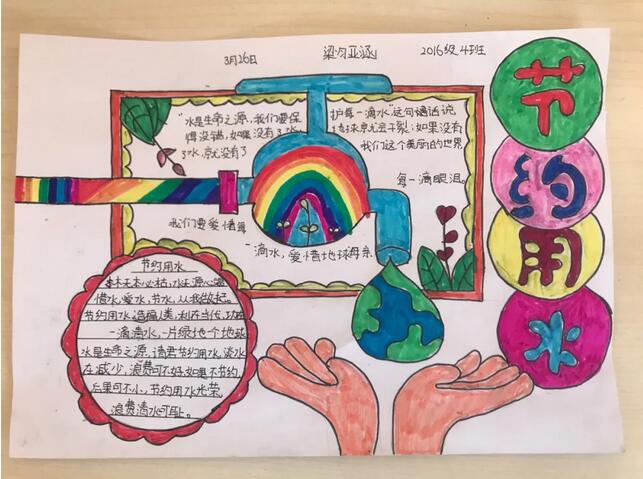 3月26日
2016级4班
节
约
用
水
"水是生命之源,我们要保
护每一滴水"这句话
得没错,如果没有了水,
地球就会干裂;如果没有
了水就没有了
我们这个美丽的世界
每一滴眼泪。
我们要爱惜每
一滴水,爱惜地球母亲
节约用水
木无本必枯,水无源必竭
惜水、爱水,节水,从我做起。
节约用水造福人类,利在当代,功在
一滴清水,一片绿地个地球
水是生命之源,请君节约用水,淡水
在减少,浪费可不好,如果不节约,
后果可不小,节约用水光荣,
浪费清水可耻。